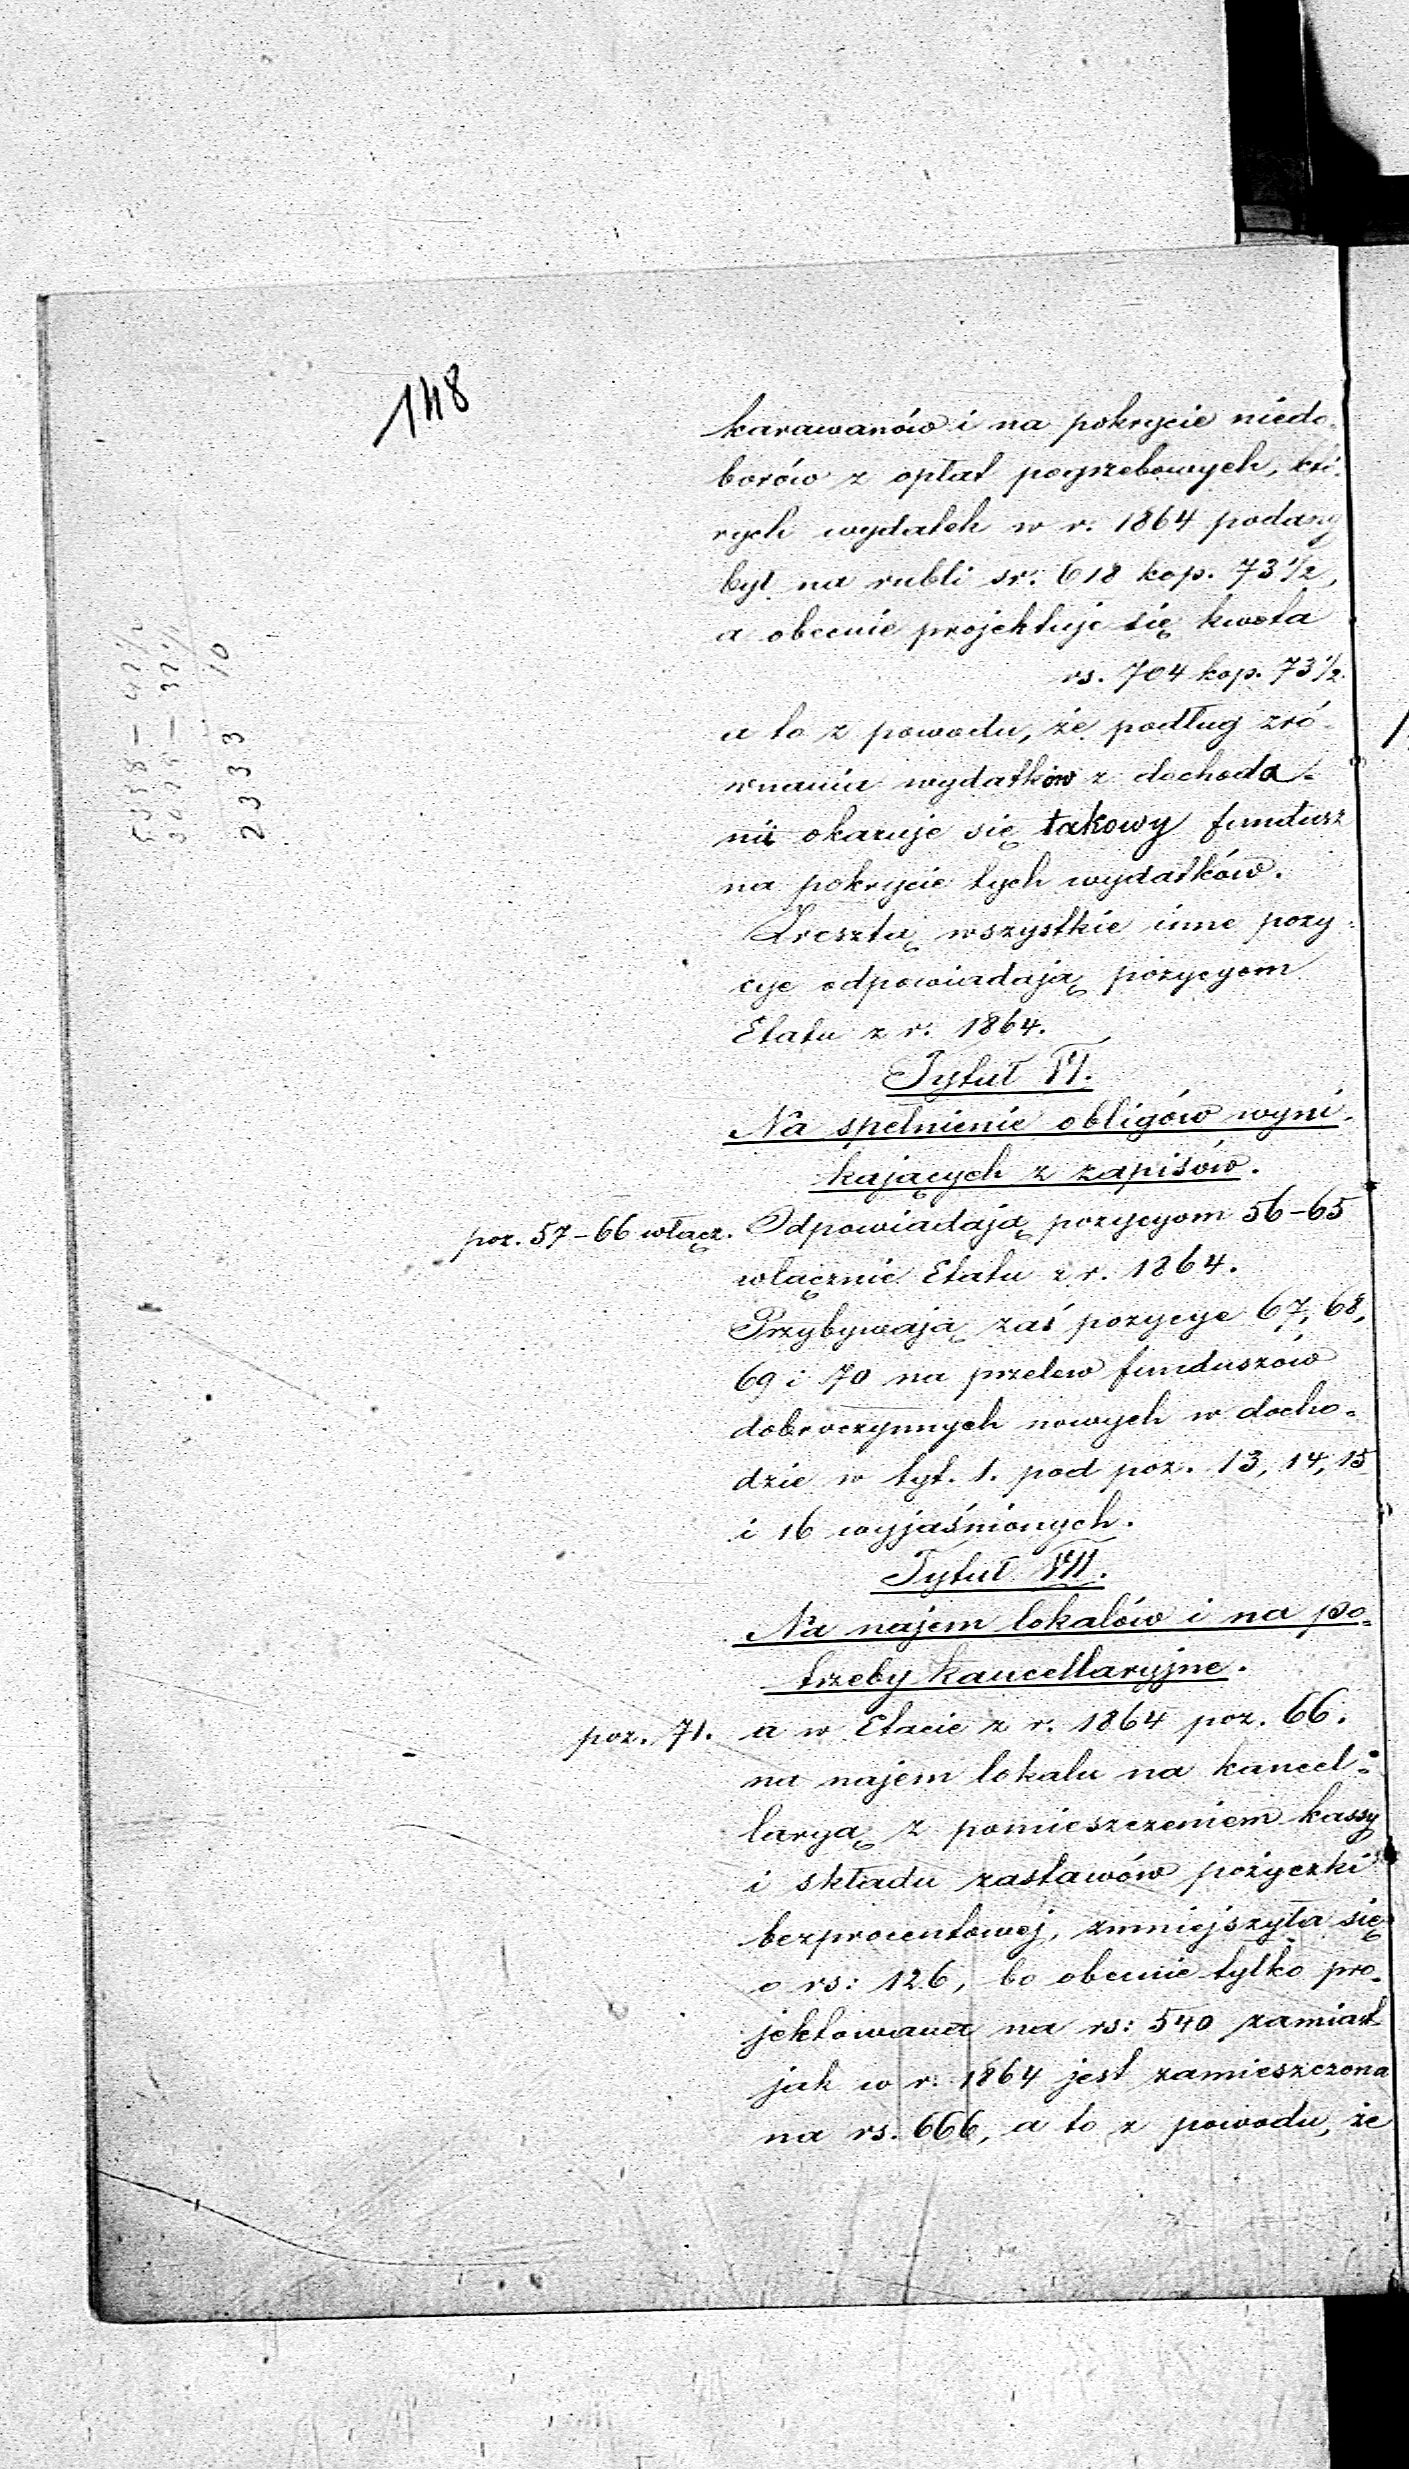 148
karawanów i na pokrycie niedo-
borów z opłat pogrzebowych, któ-
rych wydatek w r. 1864 podany
był na rubli sr. 618 kop. 73 1/2,
a obecnie projektuje się kwota
rs. 704 kop. 73 1/2.
a to z powodu, że podług zró-
wnania wydatków z dochoda-
mi okazuje się takowy fundusz
na pokrycie tych wydatków.
Zresztą wszystkie inne pozy-
cye odpowiadają pozycyom
Etatu z r. 1864.
Tytuł VI.
Na spełnienie obligów wyni-
kających z zapisów.
poz. 57-66 włącz. Odpowiadają pozycyom 56-65
włącznie Etatu z r. 1864.
Przybywają zaś pozycye 67, 68,
69 i 70 na przelew funduszów
dobroczynnych nowych w docho-
dzie w tyt. 1. pod poz. 13, 14, 15
i 16 wyjaśnionych.
Tytuł VII.
Na najem lokalów i na po-
trzeby kancellaryjne.
poz. 71. a w Etacie z r. 1864 poz. 66.
na najem lokalu na kancel-
laryą z pomieszczeniem kassy
i składu zastawów pożyczki
bezprocentowej, zmniejszyła się
o rs: 126, bo obecnie tylko pro-
jektowana na rs: 540 zamiast
jak w r. 1864 jest zamieszczona
na rs. 666, a to z powodu, że
2333 10